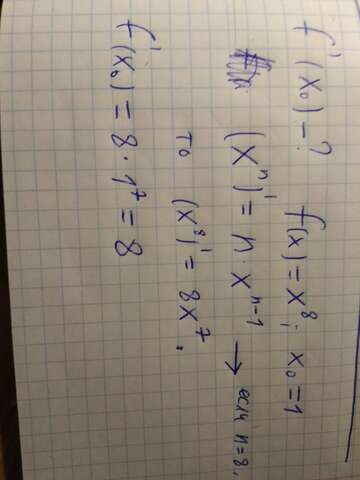 f'(x₀) – ? f(x) = x⁸; x₀ = 1
(xⁿ)' = n · xⁿ⁻¹ → если n = 8,
то (x⁸)' = 8x⁷.
f'(x₀) = 8 · 1⁷ = 8